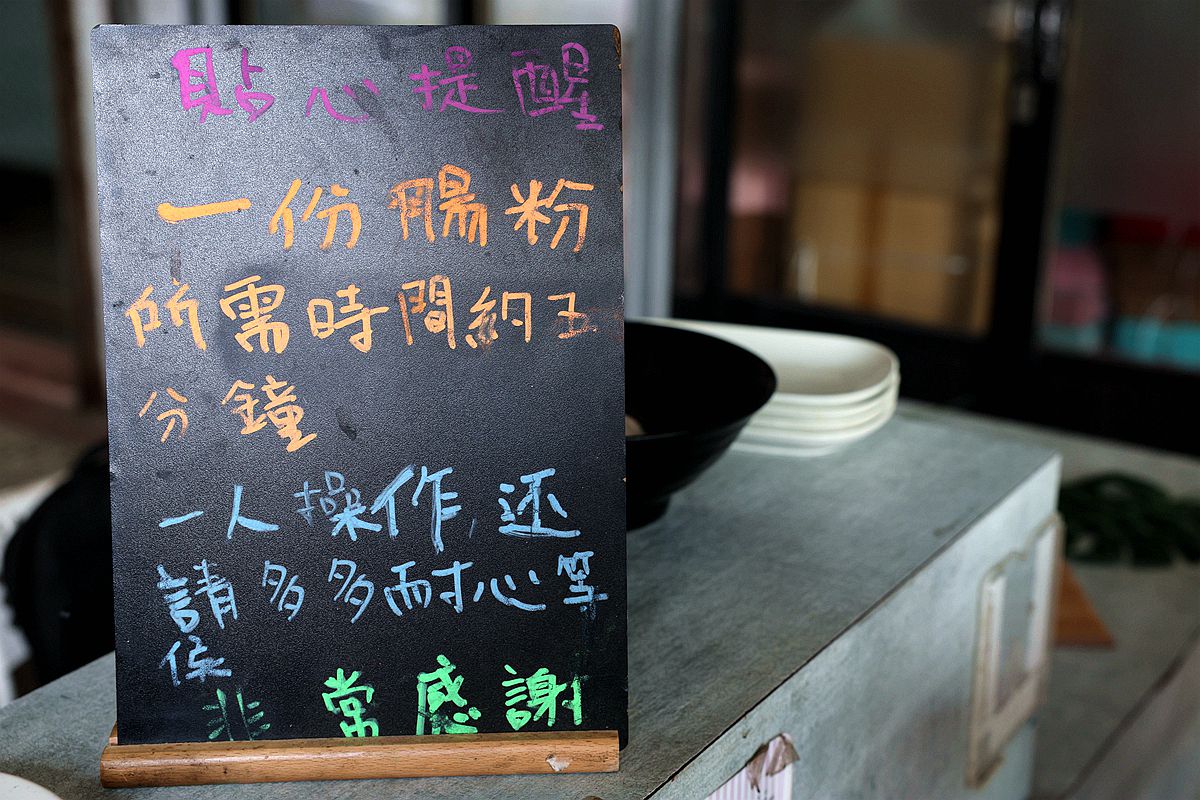 貼心提醒
一份腸粉
所需時間約五
分鐘
一人操作,还
請多多耐心等
侯
非常感謝